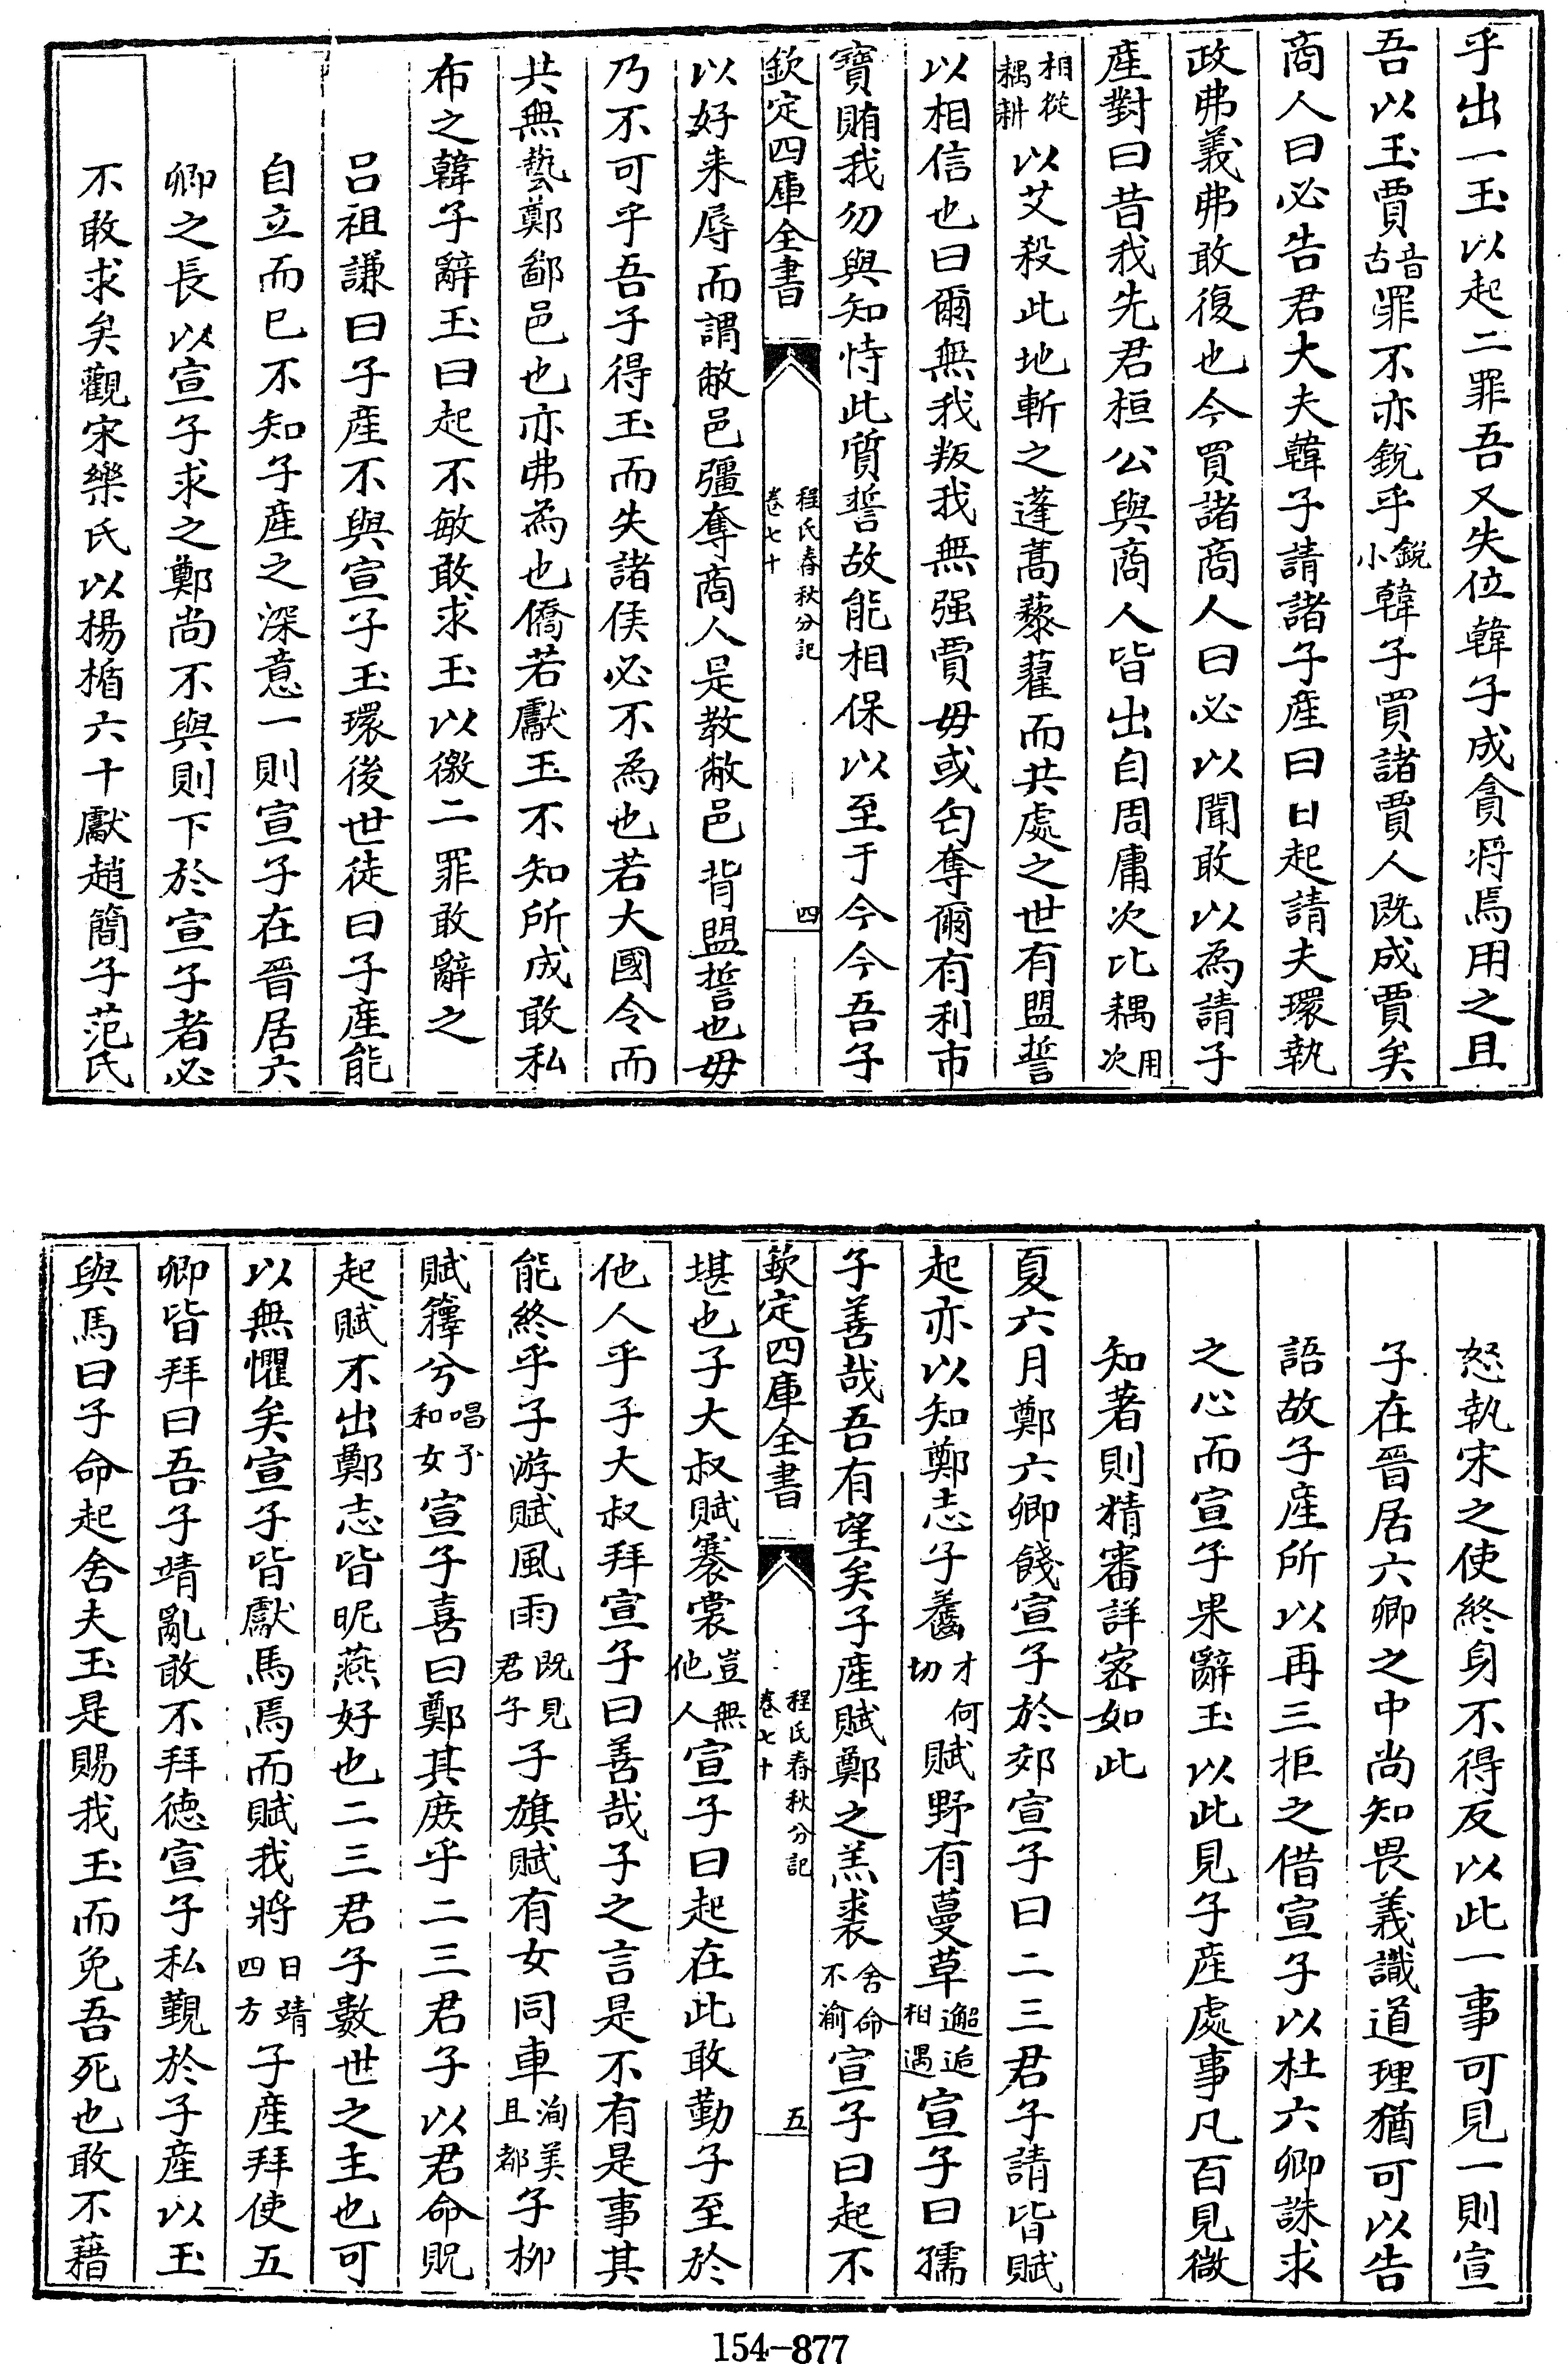 乎出一玉以起二罪吾又失位韓子成貪將焉用之且
吾以玉賈音古罪不亦銳乎銳小韓子買諸賈人既成賈矣
商人曰必告君大夫韓子請諸子産曰日起請夫環執
政弗義弗敢復也今買諸商人曰必以聞敢以為請子
産對曰昔我先君桓公與商人皆出自周庸次比耦用次
相從耦耕以艾殺此地斬之蓬蒿藜藿而共處之世有盟誓
以相信也曰爾無我叛我無强賈毋或匄奪爾有利市
寶賄我勿與知恃此質誓故能相保以至于今今吾子
欽定四庫全書
程氏春秋分記
卷七十
四
以好来辱而謂敝邑彊奪商人是教敝邑背盟誓也毋
乃不可乎吾子得玉而失諸侯必不為也若大國令而
共無藝鄭鄙邑也亦弗為也僑若獻玉不知所成敢私
布之韓子辭玉曰起不敏敢求玉以徼二罪敢辭之
吕祖謙曰子産不與宣子玉環後世徒曰子産能
自立而已不知子産之深意一則宣子在晉居六
卿之長以宣子求之鄭尚不與則下於宣子者必
不敢求矣觀宋樂氏以楊楯六十獻趙簡子范氏
怒執宋之使終身不得反以此一事可見一則宣
子在晉居六卿之中尚知畏義識道理猶可以告
語故子産所以再三拒之借宣子以杜六卿誅求
之心而宣子果辭玉以此見子産處事凡百見微
知著則精審詳密如此
夏六月鄭六卿餞宣子於郊宣子曰二三君子請皆賦
起亦以知鄭志子齹才何切賦野有蔓草邂逅相遇宣子曰孺
子善哉吾有望矣子産賦鄭之羔裘舍命不渝宣子曰起不
欽定四庫全書
程氏春秋分記
卷七十
五
堪也子大叔賦褰裳豈無他人宣子曰起在此敢勤子至於
他人乎子大叔拜宣子曰善哉子之言是不有是事其
能終乎子游賦風雨既見君子子旗賦有女同車洵美且都子柳
賦籜兮唱予和女宣子喜曰鄭其庶乎二三君子以君命貺
起賦不出鄭志皆昵燕好也二三君子數世之主也可
以無懼矣宣子皆獻馬焉而賦我將日靖四方子産拜使五
卿皆拜曰吾子靖亂敢不拜德宣子私覲於子産以玉
與馬曰子命起舍夫玉是賜我玉而免吾死也敢不藉
154-877